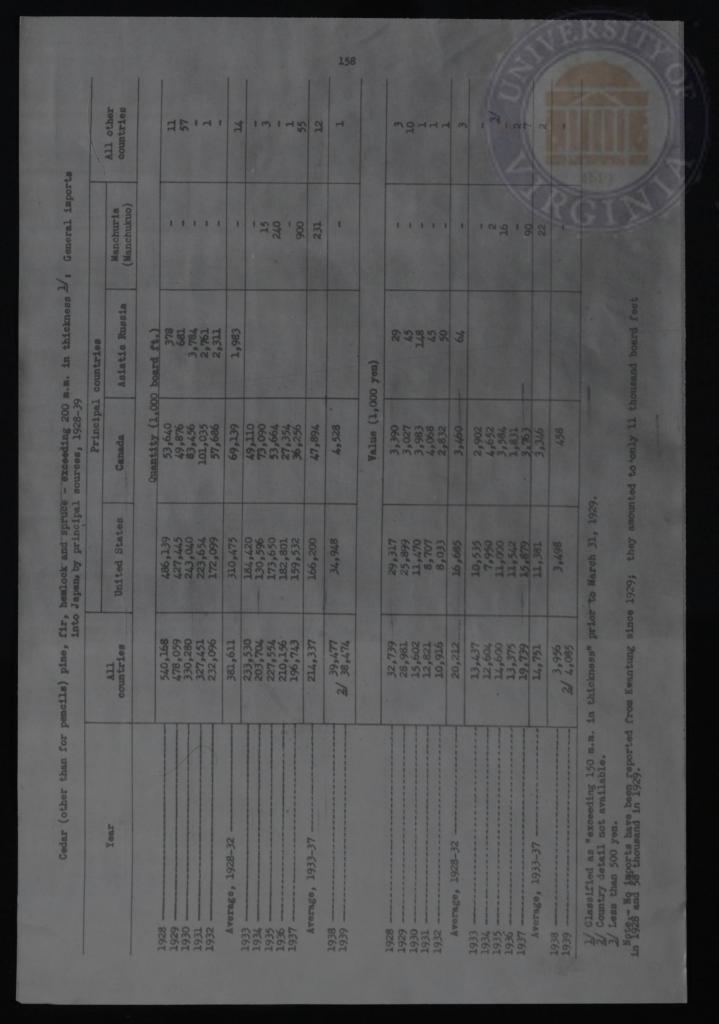 158
Cedar (other than for pencils) pine, fir, hemlock and spruce - exceeding 200 m.m. in thickness 1/: General imports
into Japan, by principal sources, 1928-39
Year All countries Principal countries All other countries
United States Canada Asiatic Russia Manchuria (Manchukuo)
Quantity (1,000 board ft.)
1928 540,168 486,139 53,640 378 - 11
1929 478,059 427,445 49,876 681 - 57
1930 330,280 243,040 83,456 3,784 - -
1931 327,451 223,654 101,035 2,761 - 1
1932 232,096 172,099 57,686 2,311 - -
Average, 1928-32 381,611 310,475 69,139 1,983 - 14
1933 233,530 184,420 49,110 - -
1934 203,704 130,596 73,090 15 3
1935 227,554 173,650 53,664 240 -
1936 210,156 182,801 27,354 - 1
1937 196,743 159,532 36,256 900 55
Average, 1933-37 214,337 166,200 47,894 231 12
1938 39,477 34,948 4,528 - 1
1939 2/ 38,474
Value (1,000 yen)
1928 32,739 29,317 3,390 29 - 3
1929 28,981 25,899 3,027 45 - 10
1930 15,602 11,470 3,983 148 - 1
1931 12,821 8,707 4,068 45 - 1
1932 10,916 8,033 2,832 50 - 1
Average, 1928-32 20,212 16,685 3,460 64 - 3
1933 13,437 10,535 2,902 - -
1934 12,604 7,950 4,652 2 3/
1935 14,600 11,000 3,584 16 -
1936 13,375 11,542 1,831 - 2
1937 19,739 15,879 3,763 90 7
Average, 1933-37 14,751 11,381 3,346 22 2
1938 3,956 3,498 458 - -
1939 2/ 4,085
1/ Classified as "exceeding 150 m.m. in thickness" prior to March 31, 1929.
2/ Country detail not available.
3/ Less than 500 yen.
Note.- No imports have been reported from Kwantung since 1929; they amounted to only 11 thousand board feet
in 1928 and 58 thousand in 1929.
UNIVERSITY OF VIRGINIA
1819